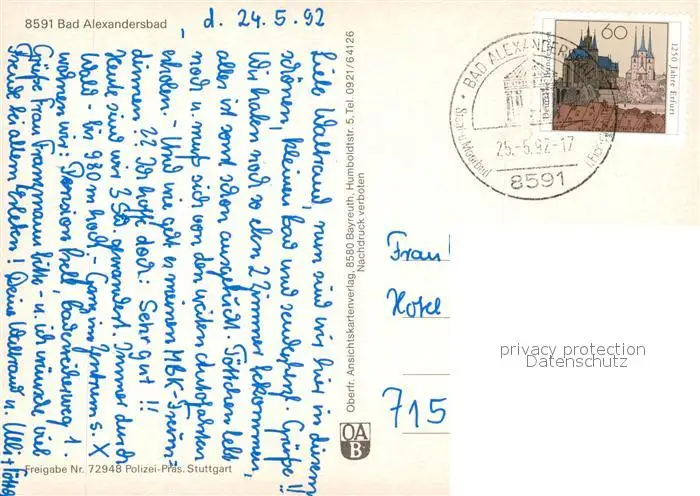 8591 Bad Alexandersbad
d. 24.5.92
Liebe Waltraud, nun sind wir hier in diesem
schönen, kleinen Bad und senden Grüße!!
Wir haben noch so eben 2 Zimmer bekommen,
alles ist sonst schon ausgebucht. Töttchen lebt
noch u. muß sich von den weiten Autofahrten
erholen. - Und wie geht es meinen MBK-Freun-
dinnen? ?? Ich hoffe doch: Sehr gut!!
Heute sind wir 3 Std. gewandert. Immer durch
Wald - bis 980 m hoch - Ganz im Zentrum s. X
wohnen wir: Pension
Grüße Frau bitte - u. ich wünsche viel
Freude bei allem Erleben! Deine Waltraud u. Ulli +
Oberfr. Ansichtskartenverlag, 8580 Bayreuth, Humboldtstr. 5, Tel. 0921/64126
Nachdruck verboten
OA
B
Freigabe Nr. 72948 Polizei-Präs. Stuttgart
60
Deutsche Bundespost
1250 Jahre Erfurt
BAD ALEXANDER
25.-5.92-17
8591
Frau
Hotel
715
privacy protection
Datenschutz